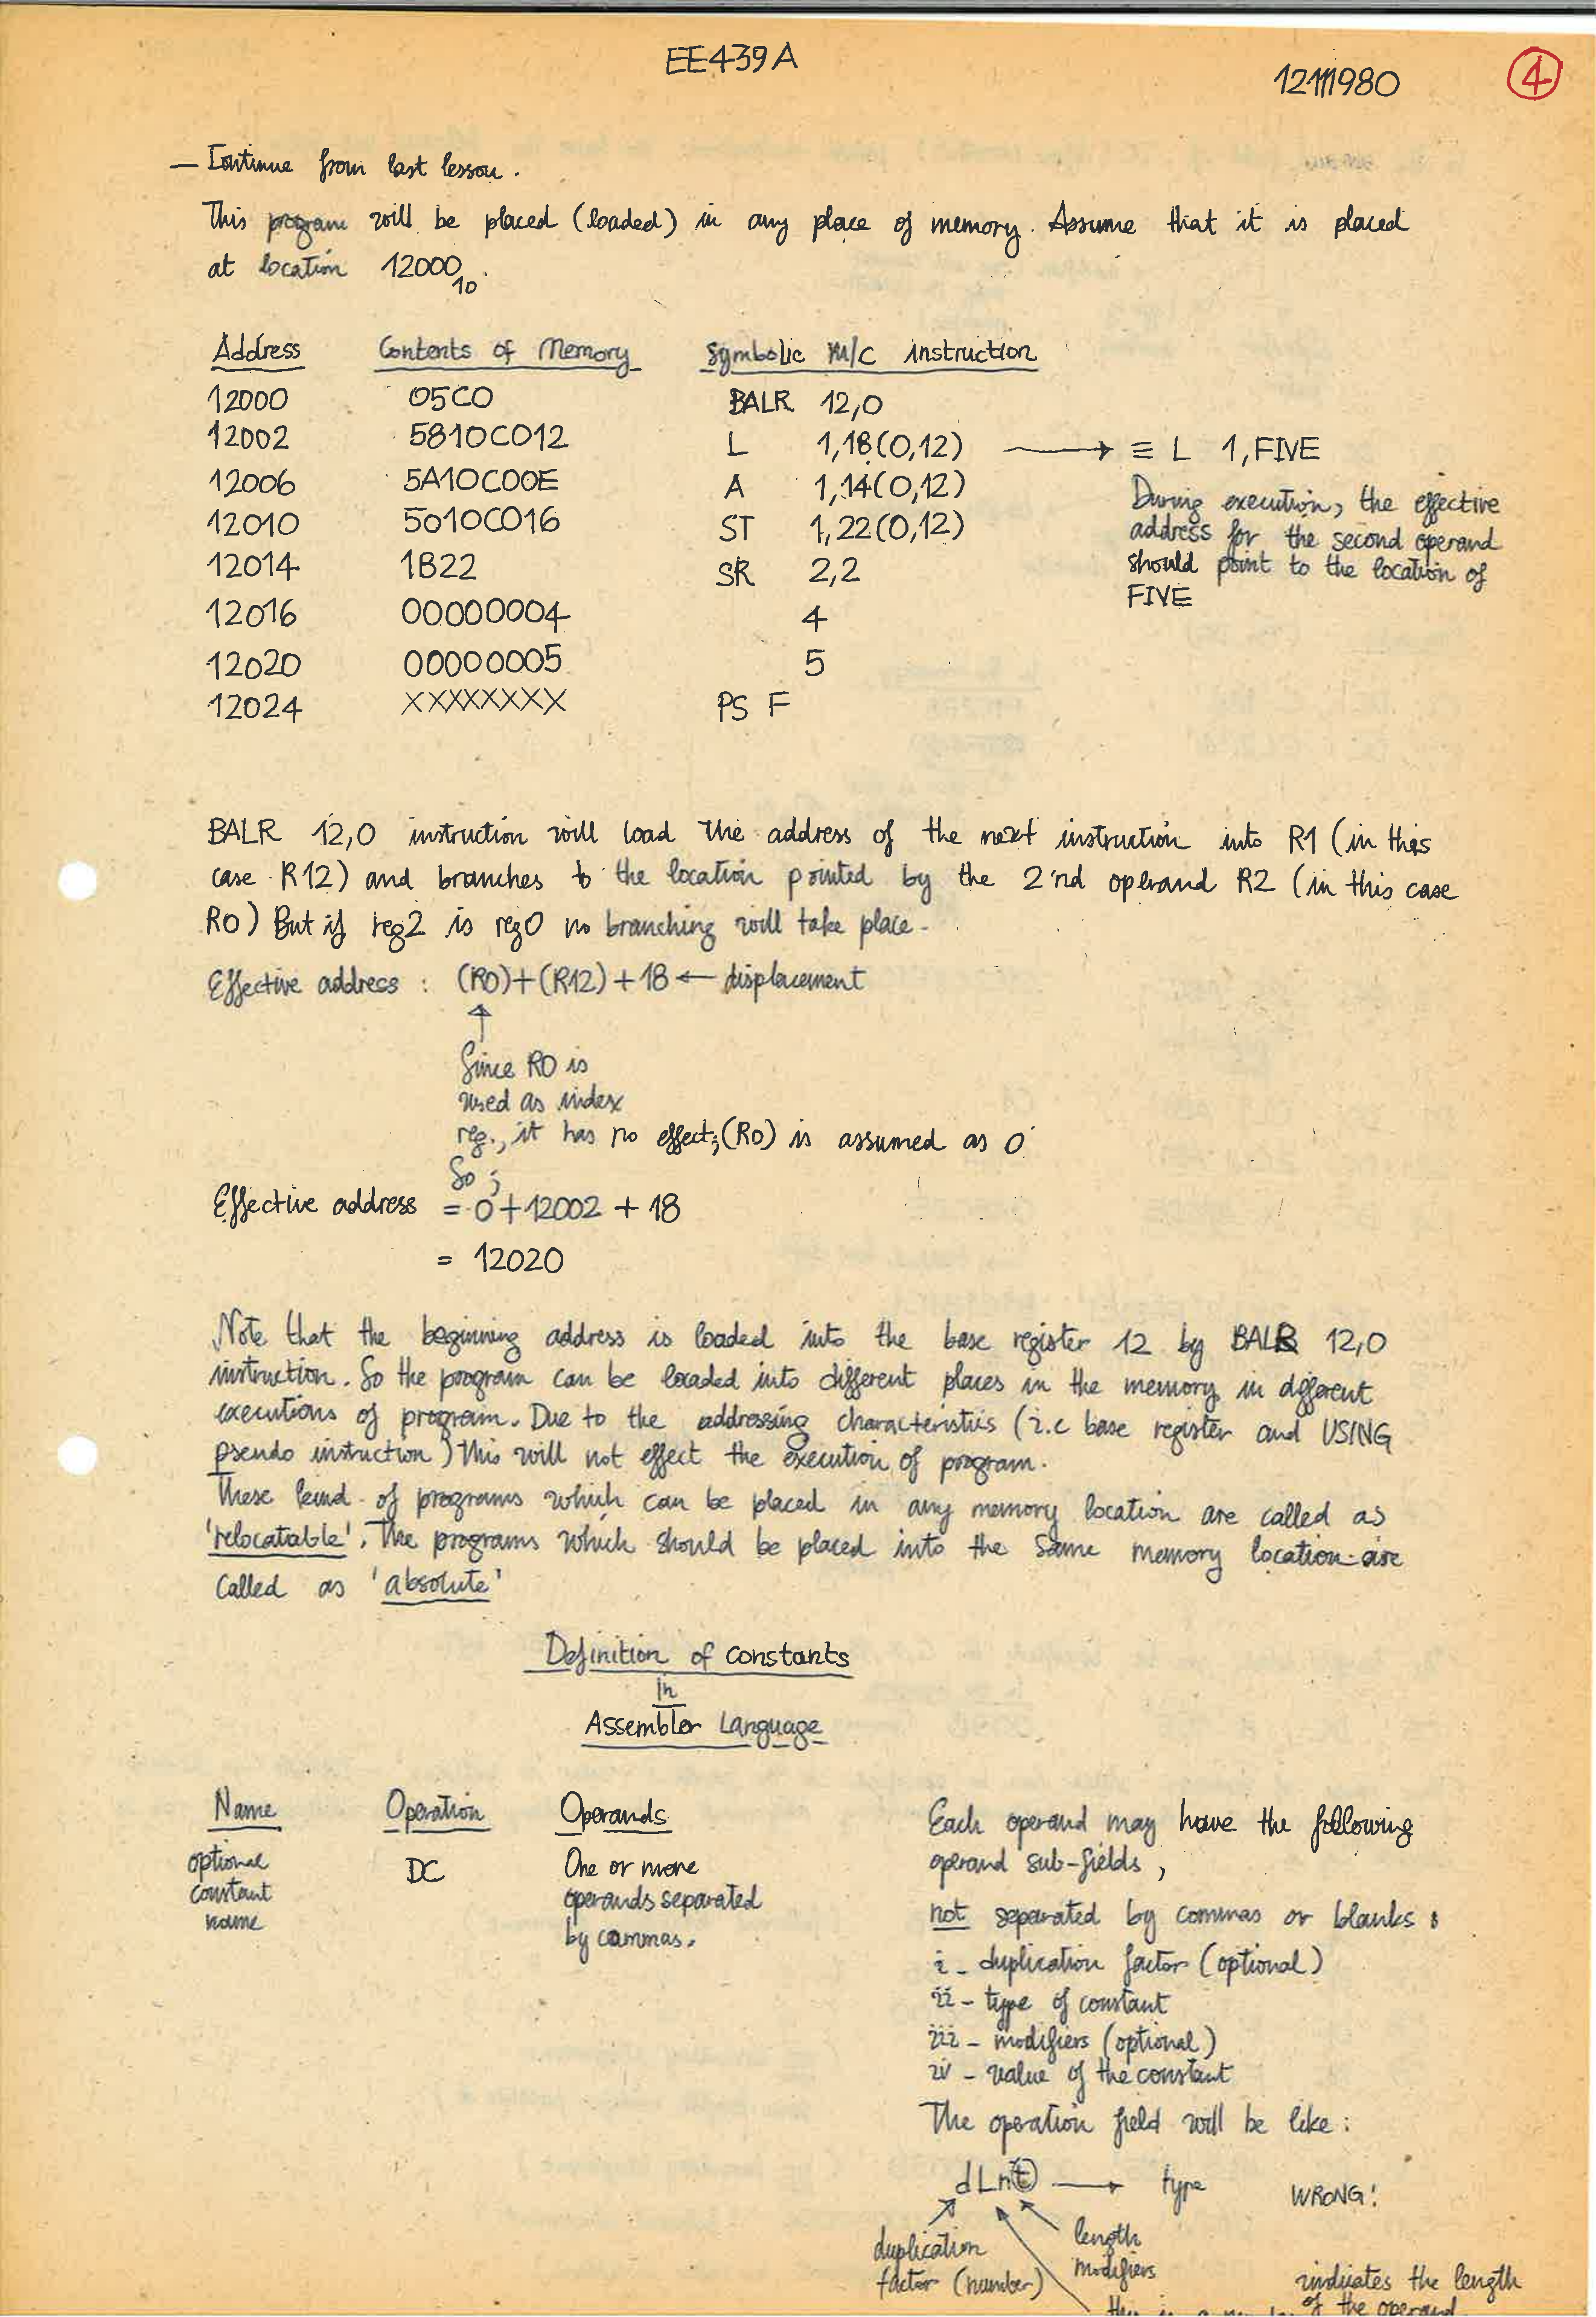 EE439A
12111980
4
— Continue from last lesson.
This program will be placed (loaded) in any place of memory. Assume that it is placed
at location 12000₁₀.
Address Contents of Memory Symbolic M/C instruction
12000 05C0 BALR 12,0
12002 5810C012 L 1,18(0,12) → ≡ L 1,FIVE
12006 5A10C00E A 1,14(0,12)
12010 5010C016 ST 1,22(0,12)
12014 1B22 SR 2,2
12016 00000004 4
12020 00000005 5
12024 XXXXXXXX PS F
During execution, the effective
address for the second operand
should point to the location of
FIVE
BALR 12,0 instruction will load the address of the next instruction into R1 (in this
case R12) and branches to the location pointed by the 2'nd operand R2 (in this case
R0) But if reg2 is reg0 no branching will take place.
Effective address : (R0)+(R12)+18 ← displacement
Since R0 is
used as index
reg., it has no effect;(R0) is assumed as 0
So ;
Effective address = 0+12002 + 18
= 12020
Note that the beginning address is loaded into the base register 12 by BALR 12,0
instruction. So the program can be loaded into different places in the memory in different
executions of program. Due to the addressing characteristics (i.e base register and USING
pseudo instruction) this will not effect the execution of program.
These kind of programs which can be placed in any memory location are called as
'relocatable'. The programs which should be placed into the same memory location are
called as 'absolute'
Definition of constants
in
Assembler Language
Name Operation Operands
optional DC One or more
constant operands separated
name by commas.
Each operand may have the following
operand sub-fields,
not separated by commas or blanks :
i - duplication factor (optional)
ii - type of constant
iii - modifiers (optional)
iv - value of the constant
The operation field will be like :
dLnt → type WRONG!
duplication
factor (number)
length
modifiers
indicates the length
of the operand